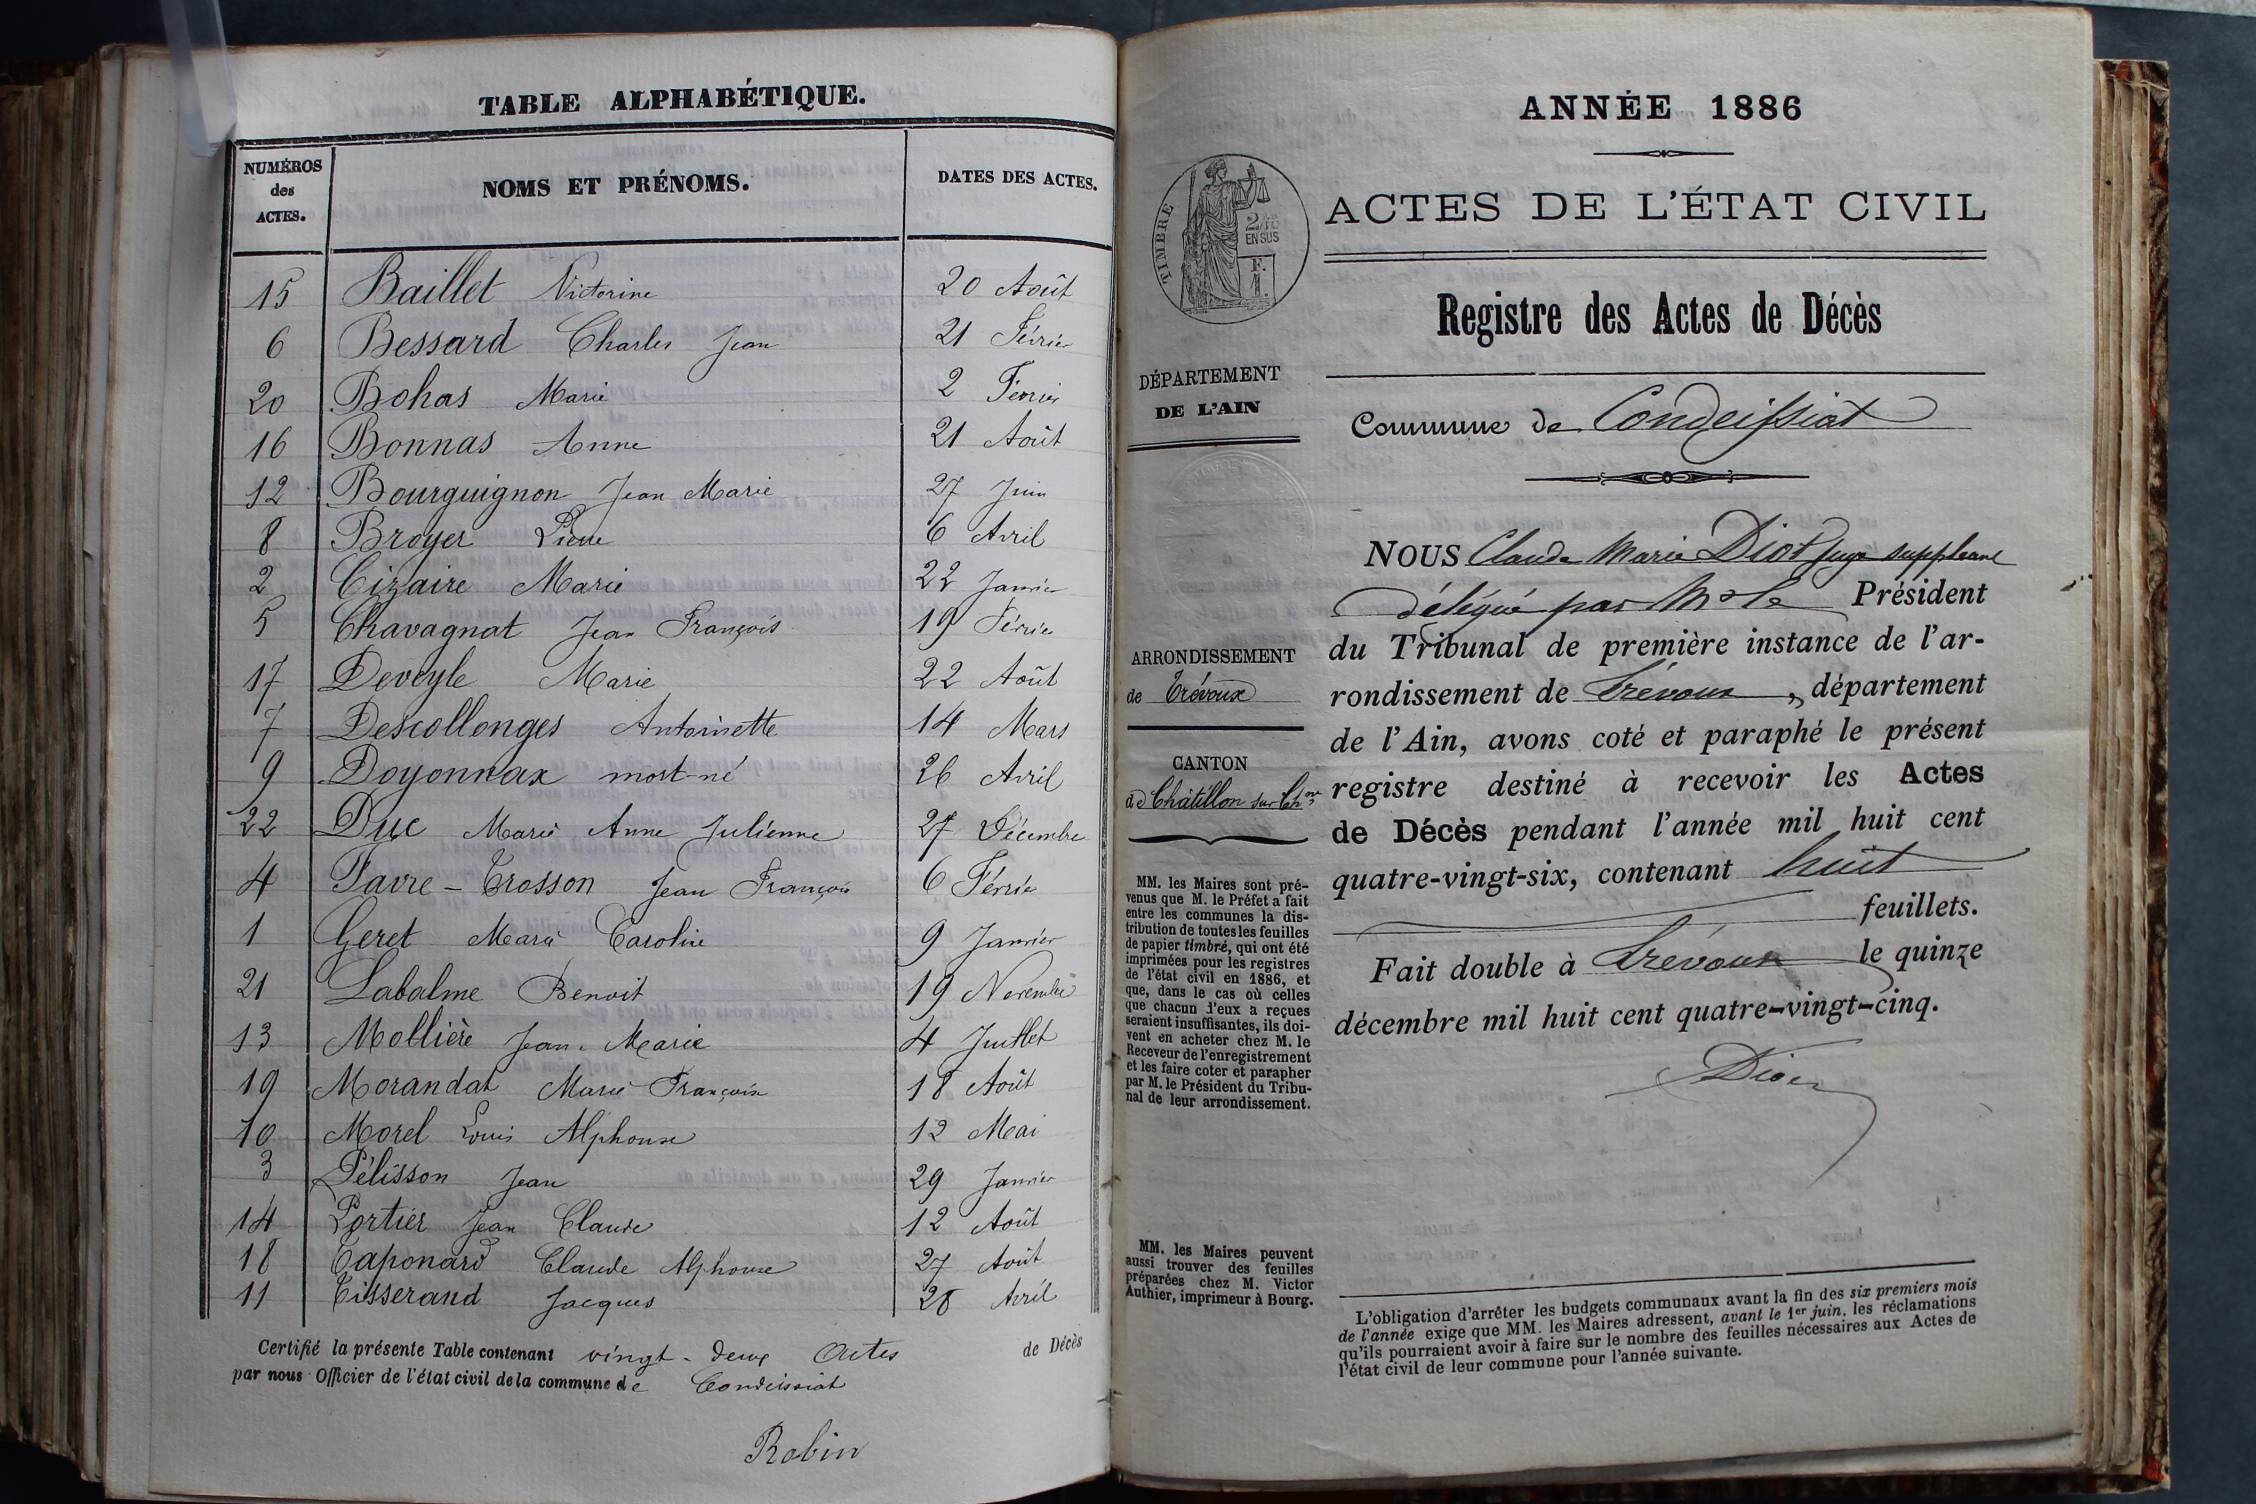 TABLE ALPHABÉTIQUE.
NUMÉROS des ACTES. NOMS ET PRÉNOMS. DATES DES ACTES.
15 Baillet Victorine 20 Août
6 Bessard Charles Jean 21 Février
20 Bohas Marie 2 Février
16 Bonnas Anne 21 Août
12 Bourguignon Jean Marie 27 Juin
8 Broyer Pierre 6 Avril
2 Cizaire Marie 22 Janvier
5 Chavagnat Jean François 19 Février
17 Deveyle Marie 22 Août
7 Descollonges Antoinette 14 Mars
9 Doyonnax mort-né 26 Avril
22 Duc Marie Anne Julienne 27 Décembre
4 Favre-Trosson Jean François 6 Février
1 Geret Marie Caroline 9 Janvier
21 Labalme Benoit 19 Novembre
13 Mollière Jean-Marie 4 Juillet
19 Morandat Marie Françoise 18 Août
10 Morel Louis Alphonse 12 Mai
3 Pélisson Jean 29 Janvier
14 Portier Jean Claude 12 Août
18 Taponard Claude Alphonse 27 Août
11 Tisserand Jacques 28 Avril
Certifié la présente Table contenant vingt-deux Actes de Décès
par nous Officier de l'état civil de la commune de Condeissiat
Robin
ANNÉE 1886
ACTES DE L'ÉTAT CIVIL
TIMBRE
2/10
EN SUS
F.
1.
Registre des Actes de Décès
DÉPARTEMENT
DE L'AIN
Commune de Condeissiat
ARRONDISSEMENT
de Trévoux
CANTON
de Châtillon sur Ch.ne
MM. les Maires sont pré-
venus que M. le Préfet a fait
entre les communes la dis-
tribution de toutes les feuilles
de papier timbré, qui ont été
imprimées pour les registres
de l'état civil en 1886, et
que, dans le cas où celles
que chacun d'eux a reçues
seraient insuffisantes, ils doi-
vent en acheter chez M. le
Receveur de l'enregistrement
et les faire coter et parapher
par M. le Président du Tribu-
nal de leur arrondissement.
MM. les Maires peuvent
aussi trouver des feuilles
préparées chez M. Victor
Authier, imprimeur à Bourg.
NOUS Claude Marie Diot juge suppléant
délégué par Mr le Président
du Tribunal de première instance de l'ar-
rondissement de Trévoux, département
de l'Ain, avons coté et paraphé le présent
registre destiné à recevoir les Actes
de Décès pendant l'année mil huit cent
quatre-vingt-six, contenant huit
feuillets.
Fait double à Trévoux le quinze
décembre mil huit cent quatre-vingt-cinq.
Diot
L'obligation d'arrêter les budgets communaux avant la fin des six premiers mois
de l'année exige que MM. les Maires adressent, avant le 1er juin, les réclamations
qu'ils pourraient avoir à faire sur le nombre des feuilles nécessaires aux Actes de
l'état civil de leur commune pour l'année suivante.